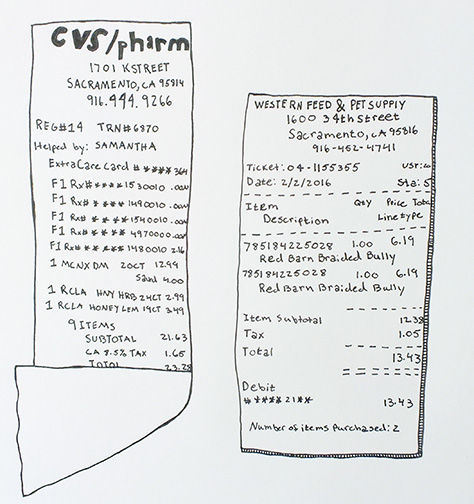 CVS/pharm
1701 K STREET
SACRAMENTO, CA 95814
916.444.9266
REG#14 TRN#6870
Helped by: SAMANTHA
ExtraCare Card # **** 364
F1 Rx#****1530010 .00
F1 Rx#****1490010 .00
F1 Rx#****1540010 .00
F1 Rx#****4970000 .00
F1 Rx#****1480010 2.16
1 MCNX DM 20CT 12.99
Saved 4.00
1 RCLA HNY HRB 24CT 2.99
1 RCLA HONEY LEM 19CT 3.49
9 ITEMS
SUBTOTAL 21.63
CA 8.5% TAX 1.65
TOTAL 23.28
WESTERN FEED & PET SUPPLY
1600 34th Street
Sacramento, CA 95816
916-452-4741
Ticket: 04-1155355 usr:
Date: 2/2/2016 Sta: 5
Item Qty Price Total
Description Line type
785184225028 1.00 6.19
Red Barn Braided Bully
785184225028 1.00 6.19
Red Barn Braided Bully
Item Subtotal 12.38
Tax 1.05
Total 13.43
Debit
#****21** 13.43
Number of items purchased: 2